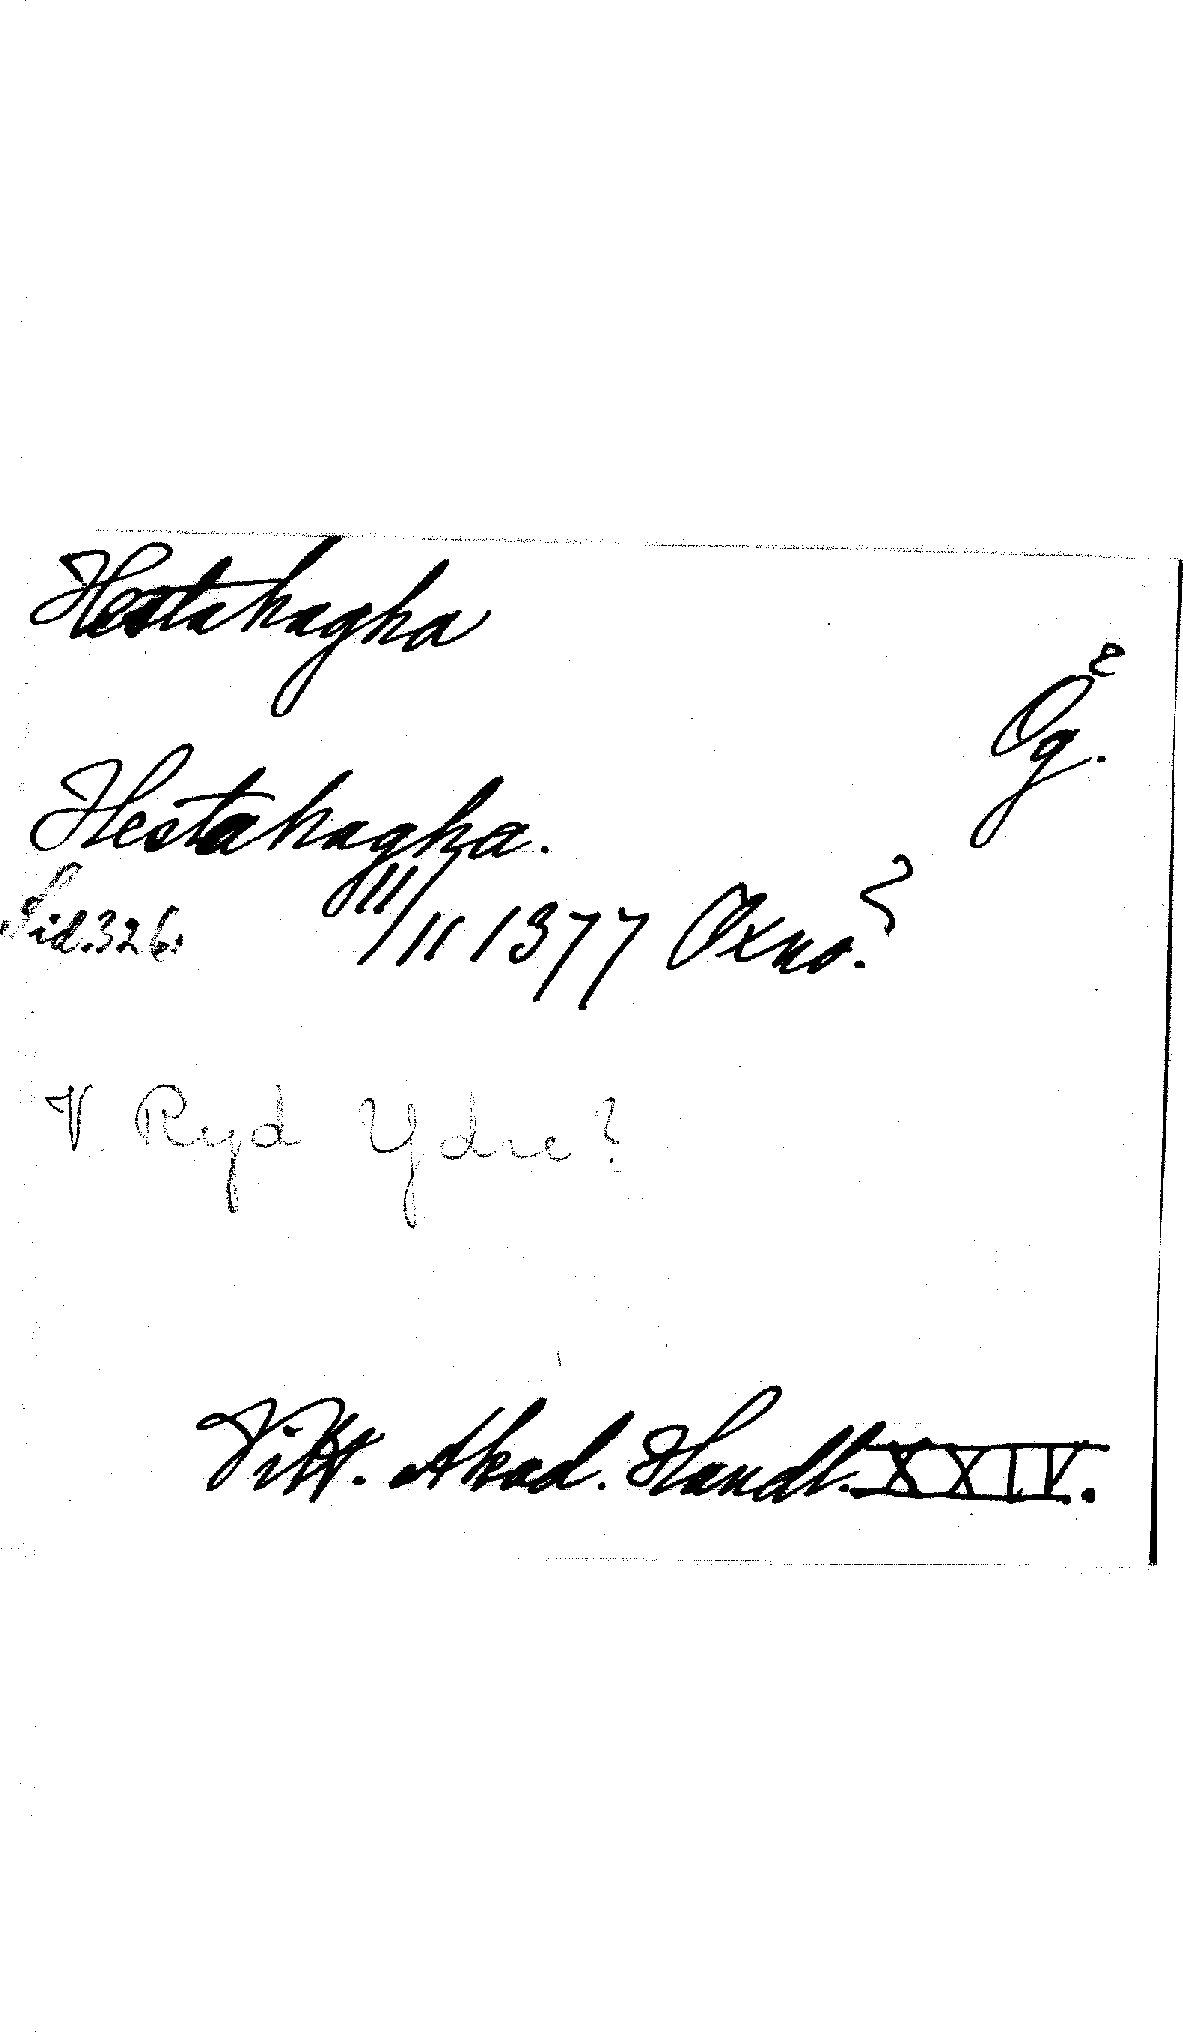 Hestahagha
Ög.
Hestahagha.
Sid. 326. 11/11 1377 Oxno.?
V Ryd Ydre?
Vitt. Akad. Handl. XXIV.